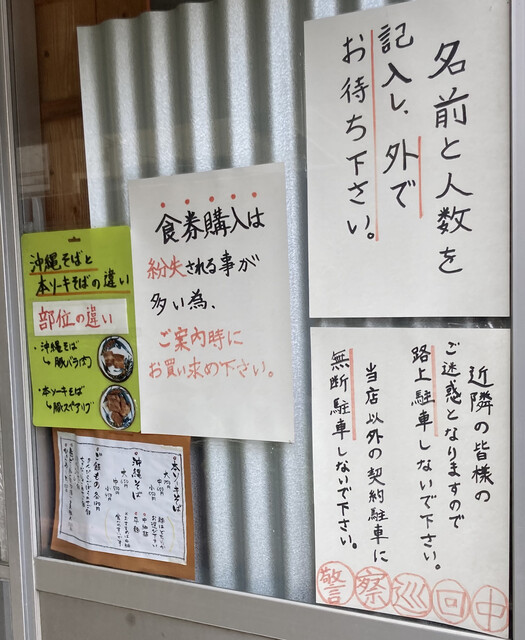 名前と人数を
記入し、外で
お待ち下さい。
食券購入は
紛失される事が
多い為、
ご案内時に
お買い求め下さい。
沖縄そばと
本ソーキそばの違い
部位の違い
・沖縄そば
↳豚バラ(肉)
・本ソーキそば
↳豚スペアリブ
近隣の皆様の
ご迷惑となりますので
路上駐車しないで下さい。
当店以外の契約駐車に
無断駐車しないで下さい。
警察巡回中
沖縄そば